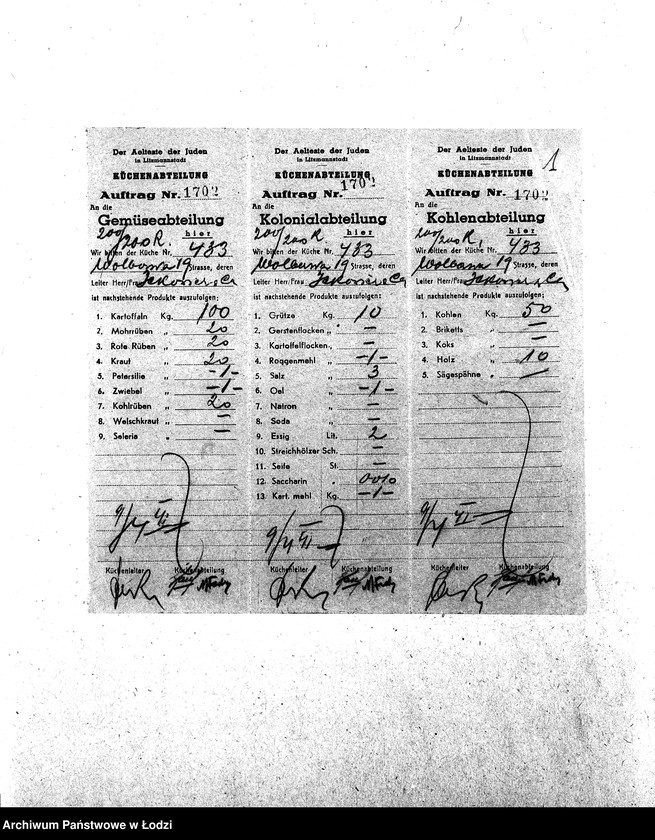 1
Der Aelteste der Juden
in Litzmannstadt
KÜCHENABTEILUNG
Auftrag Nr. 1702
An die
Gemüseabteilung
200/200 R. hier
Wir bitten der Küche Nr. 433
Strasse, deren
Leiter Herr/Frau
ist nachstehende Produkte auszufolgen:
1. Kartoffeln Kg. 100
2. Mohrrüben „ 20
3. Rote Rüben „ 20
4. Kraut „ 20
5. Petersilie „ -1-
6. Zwiebel „ -1-
7. Kohlrüben „ 20
8. Welschkraut „ —
9. Selerie „ —
Küchenleiter Küchenabteilung
Der Aelteste der Juden
in Litzmannstadt
KÜCHENABTEILUNG
Auftrag Nr. 1702
An die
Kolonialabteilung
200/200 R hier
Wir bitten der Küche Nr. 433
Strasse, deren
Leiter Herr/Frau
ist nachstehende Produkte auszufolgen:
1. Grütze Kg. 10
2. Gerstenflocken „ —
3. Kartoffelflocken „ —
4. Roggenmehl „ -1-
5. Salz „ 3
6. Oel „ -1-
7. Natron „ —
8. Soda „ —
9. Essig Lit. 2
10. Streichhölzer Sch. —
11. Seife St. —
12. Saccharin „
13. Kart. mehl Kg. -1-
Küchenleiter Küchenabteilung
Der Aelteste der Juden
in Litzmannstadt
KÜCHENABTEILUNG
Auftrag Nr. 1702
An die
Kohlenabteilung
200/200 R. hier
Wir bitten der Küche Nr. 433
Strasse, deren
Leiter Herr/Frau
ist nachstehende Produkte auszufolgen:
1. Kohlen Kg. 50
2. Briketts „ —
3. Koks „ —
4. Holz „ 10
5. Sägespähne „ —
Küchenleiter Küchenabteilung
Archiwum Państwowe w Łodzi